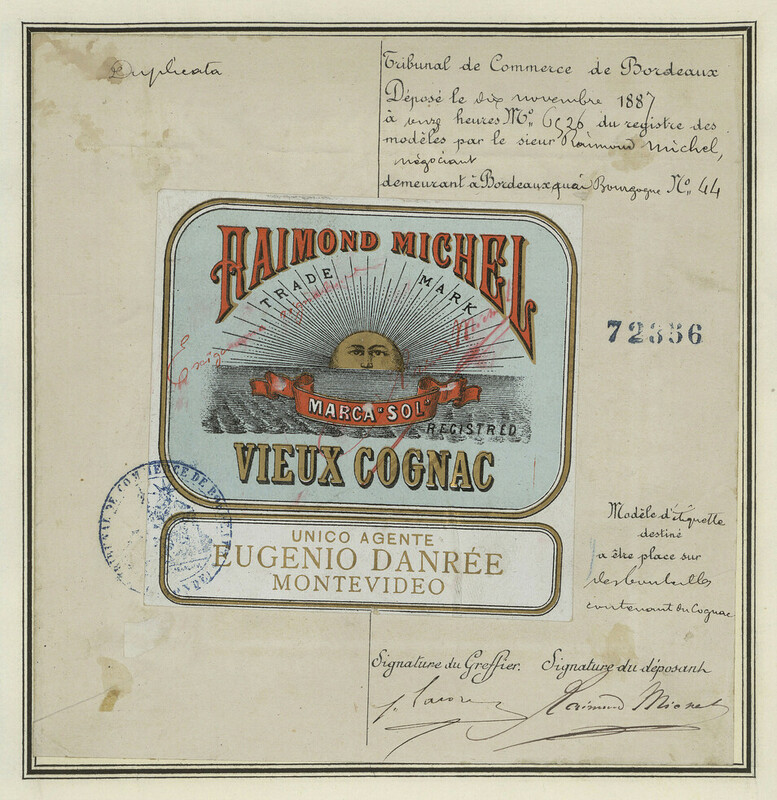 Duplicata
Tribunal de Commerce de Bordeaux
Déposé le dix novembre 1887
à onze heures No. 6526 du registre des
modèles par le sieur Raimond Michel,
négociant
demeurant à Bordeaux quai Bourgogne No. 44
RAIMOND MICHEL
TRADE MARK
72386
MARCA "SOL"
REGISTRED
VIEUX COGNAC
UNICO AGENTE
EUGENIO DANRÉE
MONTEVIDEO
TRIBUNAL DE COMMERCE DE
Modèle d'étiquette
destiné
a être place sur
des bouteilles
contenant du Cognac
Signature du Greffier. Signature du déposant
Raimond Michel